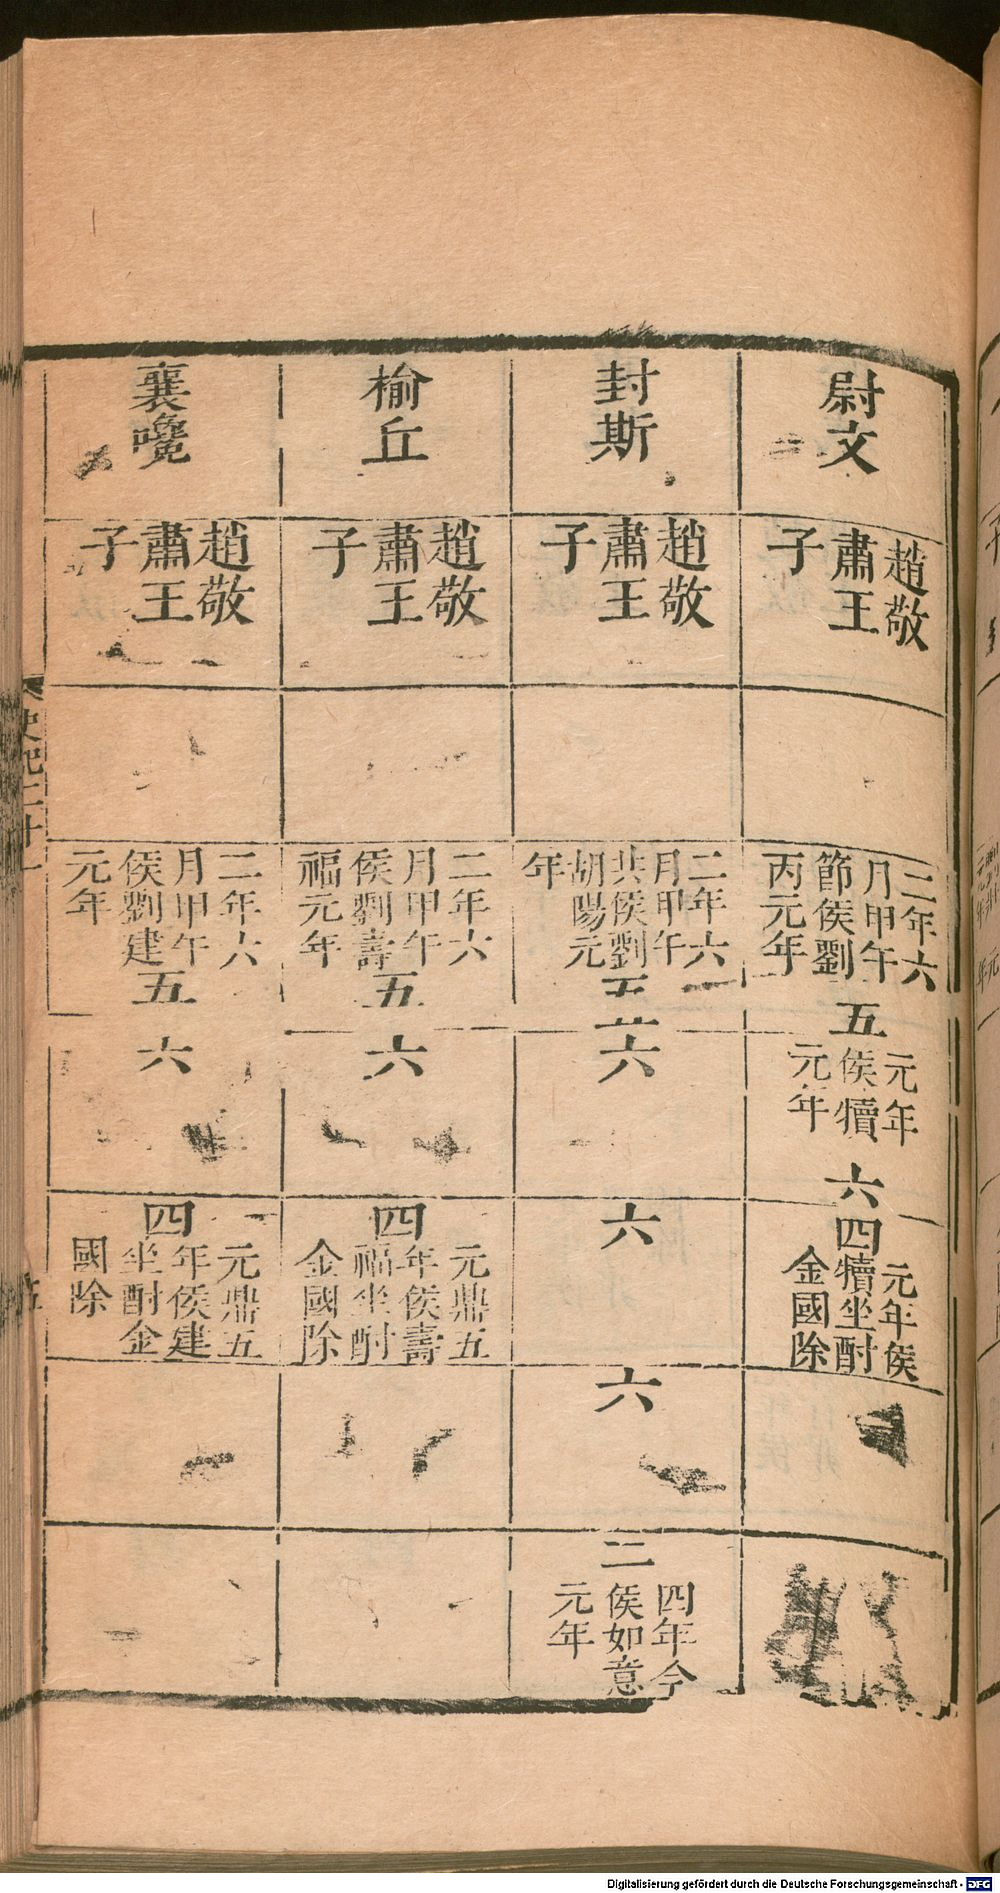 尉文
趙敬
肅王
子
二年六
月甲午
節侯劉
丙元年
五
元年
侯犢
元年
六
四
元年侯
犢坐酎
金國除
封斯
趙敬
肅王
子
二年六
月甲午
共侯劉
胡陽元
年
五
六
六
六
二
四年今
侯如意
元年
榆丘
趙敬
肅王
子
二年六
月甲午
侯劉壽
福元年
五
六
四
元鼎五
年侯壽
福坐酎
金國除
襄嚵
趙敬
肅王
子
二年六
月甲午
侯劉建
元年
五
六
四
元鼎五
年侯建
坐酎金
國除
史記二十一
Digitalisierung gefördert durch die Deutsche Forschungsgemeinschaft - DFG